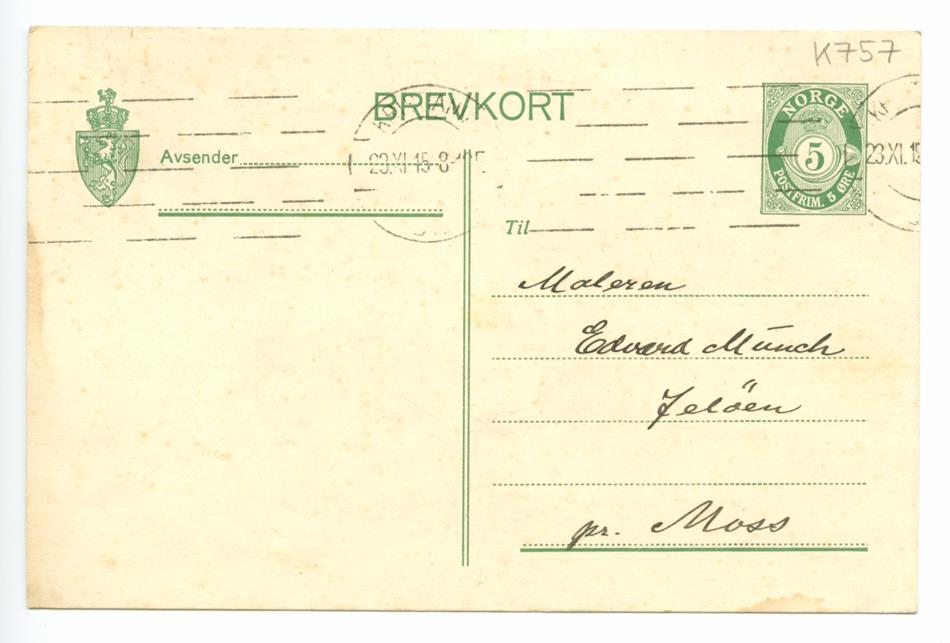 K757
BREVKORT
NORGE
5
POSTFRIM. 5 ØRE
Avsender
23.XI.15-8
23.XI.15
Til
Maleren
Edvard Munch
Jelöen
pr. Moss